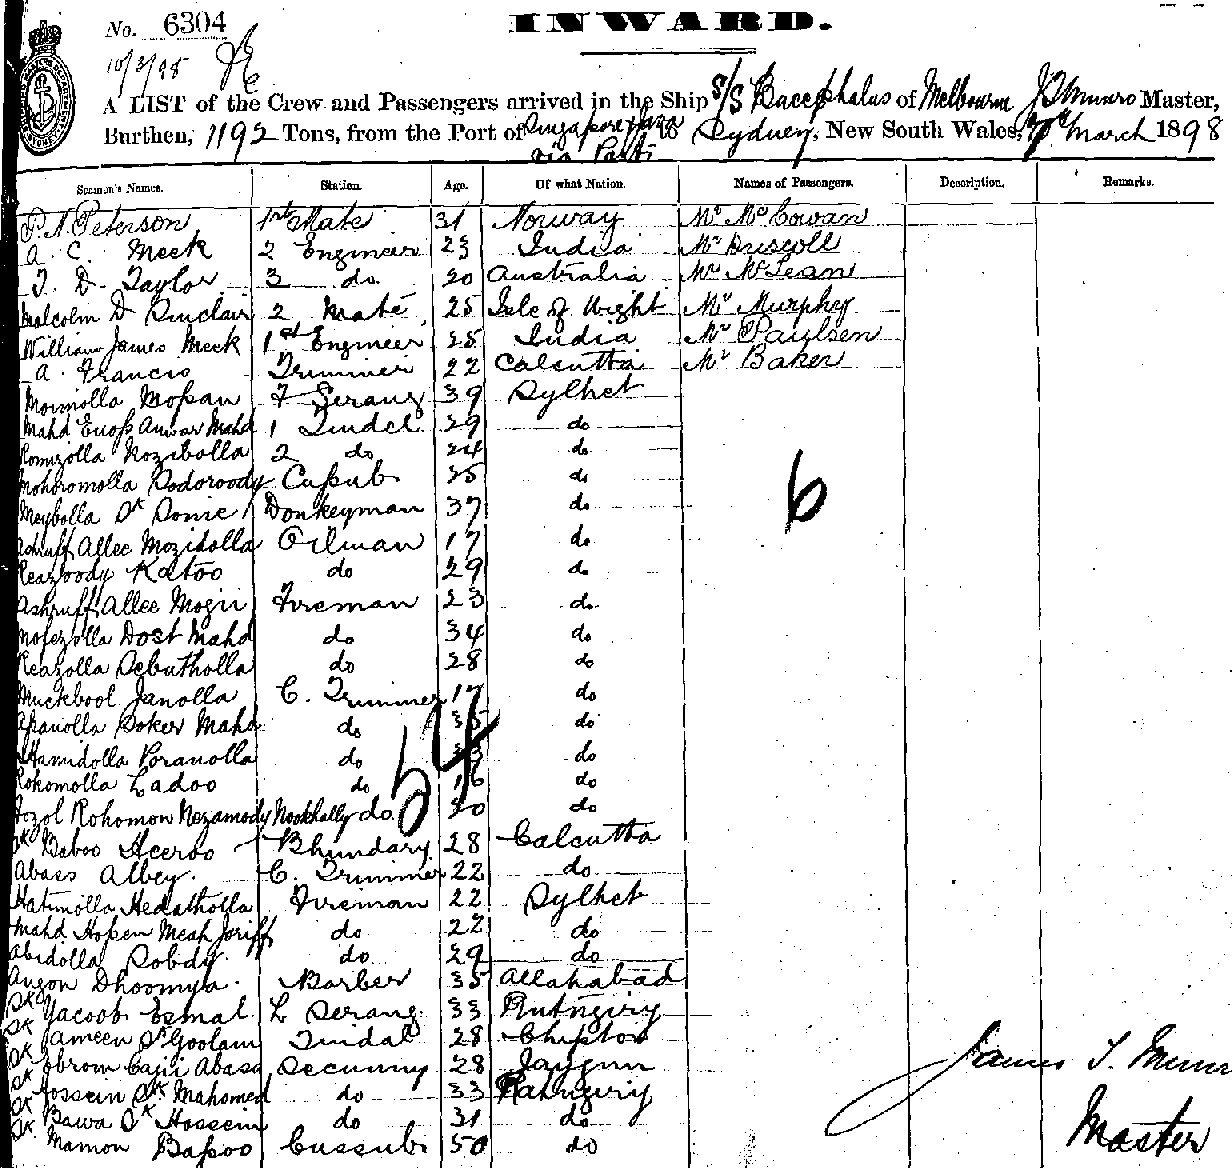 No. 6304
INWARD.
10/3/98
A LIST of the Crew and Passengers arrived in the Ship S/S Bucephalus of Melbourne J T Munro Master,
Burthen, 1192 Tons, from the Port of Singapore Java to Sydney, New South Wales, March 1898
via Ports
Seamen's Names. Station. Age. Of what Nation. Names of Passengers. Description. Remarks.
P. N. Peterson 1st Mate 31 Norway Mr McCowan
A. C. Meek 2 Engineer 23 India Mr Driscoll
T. D. Taylor 3 do 20 Australia Mr McLean
Malcolm D Sinclair 2 Mate 25 Isle of Wight Mr Murphy
William James Meek 1st Engineer 28 India Mr Paulsen
A. Francis Trimmer 22 Calcutta Mr Baker
Moimolla Mossan F Serang 39 Sylhet
Mahd Enoss Anwar Mahd 1 Tindel 29 do
Romizolla Nozibolla 2 do 24 do
Mohoromolla Sodoroody Cussub 35 do
Meybolla Sk Sonie Donkeyman 37 do
Ashruff Allee Mozidolla Oilman 17 do
Reazoody Katoo do 29 do
Ashruff Allee Mogii Fireman 23 do
Mofezolla Dost Mahd do 34 do
Reazolla Sebutholla do 28 do
Muckbool Janolla C. Trimmer 17 do
Asanolla Soker Mahd do 35 do
Hamidolla Poranolla do do
Rohomolla Ladoo do 16 do
Fozol Rohomon Nezamody Nookhally do 30 do
Sk Baboo Aceroo Bhundary 28 Calcutta
Abass Albey C. Trimmer 22 do
Hatimolla Hedatholla Fireman 22 Sylhet
Mahd Hossen Meah Joriff do 22 do
Abidolla Sobdy do 29 do
Angon Dhoomya Barber 35 Allahabad
Sk Yacoob Esmal L Serang 33 Rutngiry
Sk Jameen Sk Goolam Tindal 28 Chiplon
Sk Ebrom Cajii Abasa Secunny 28 Jaygun
Sk Hossein Sk Mahomed do 33 Ratngiry
Sk Bawa Sk Hossein do 31 do
Sk Mamon Bapoo Cussub 50 do
6
54
James T. Munro
Master